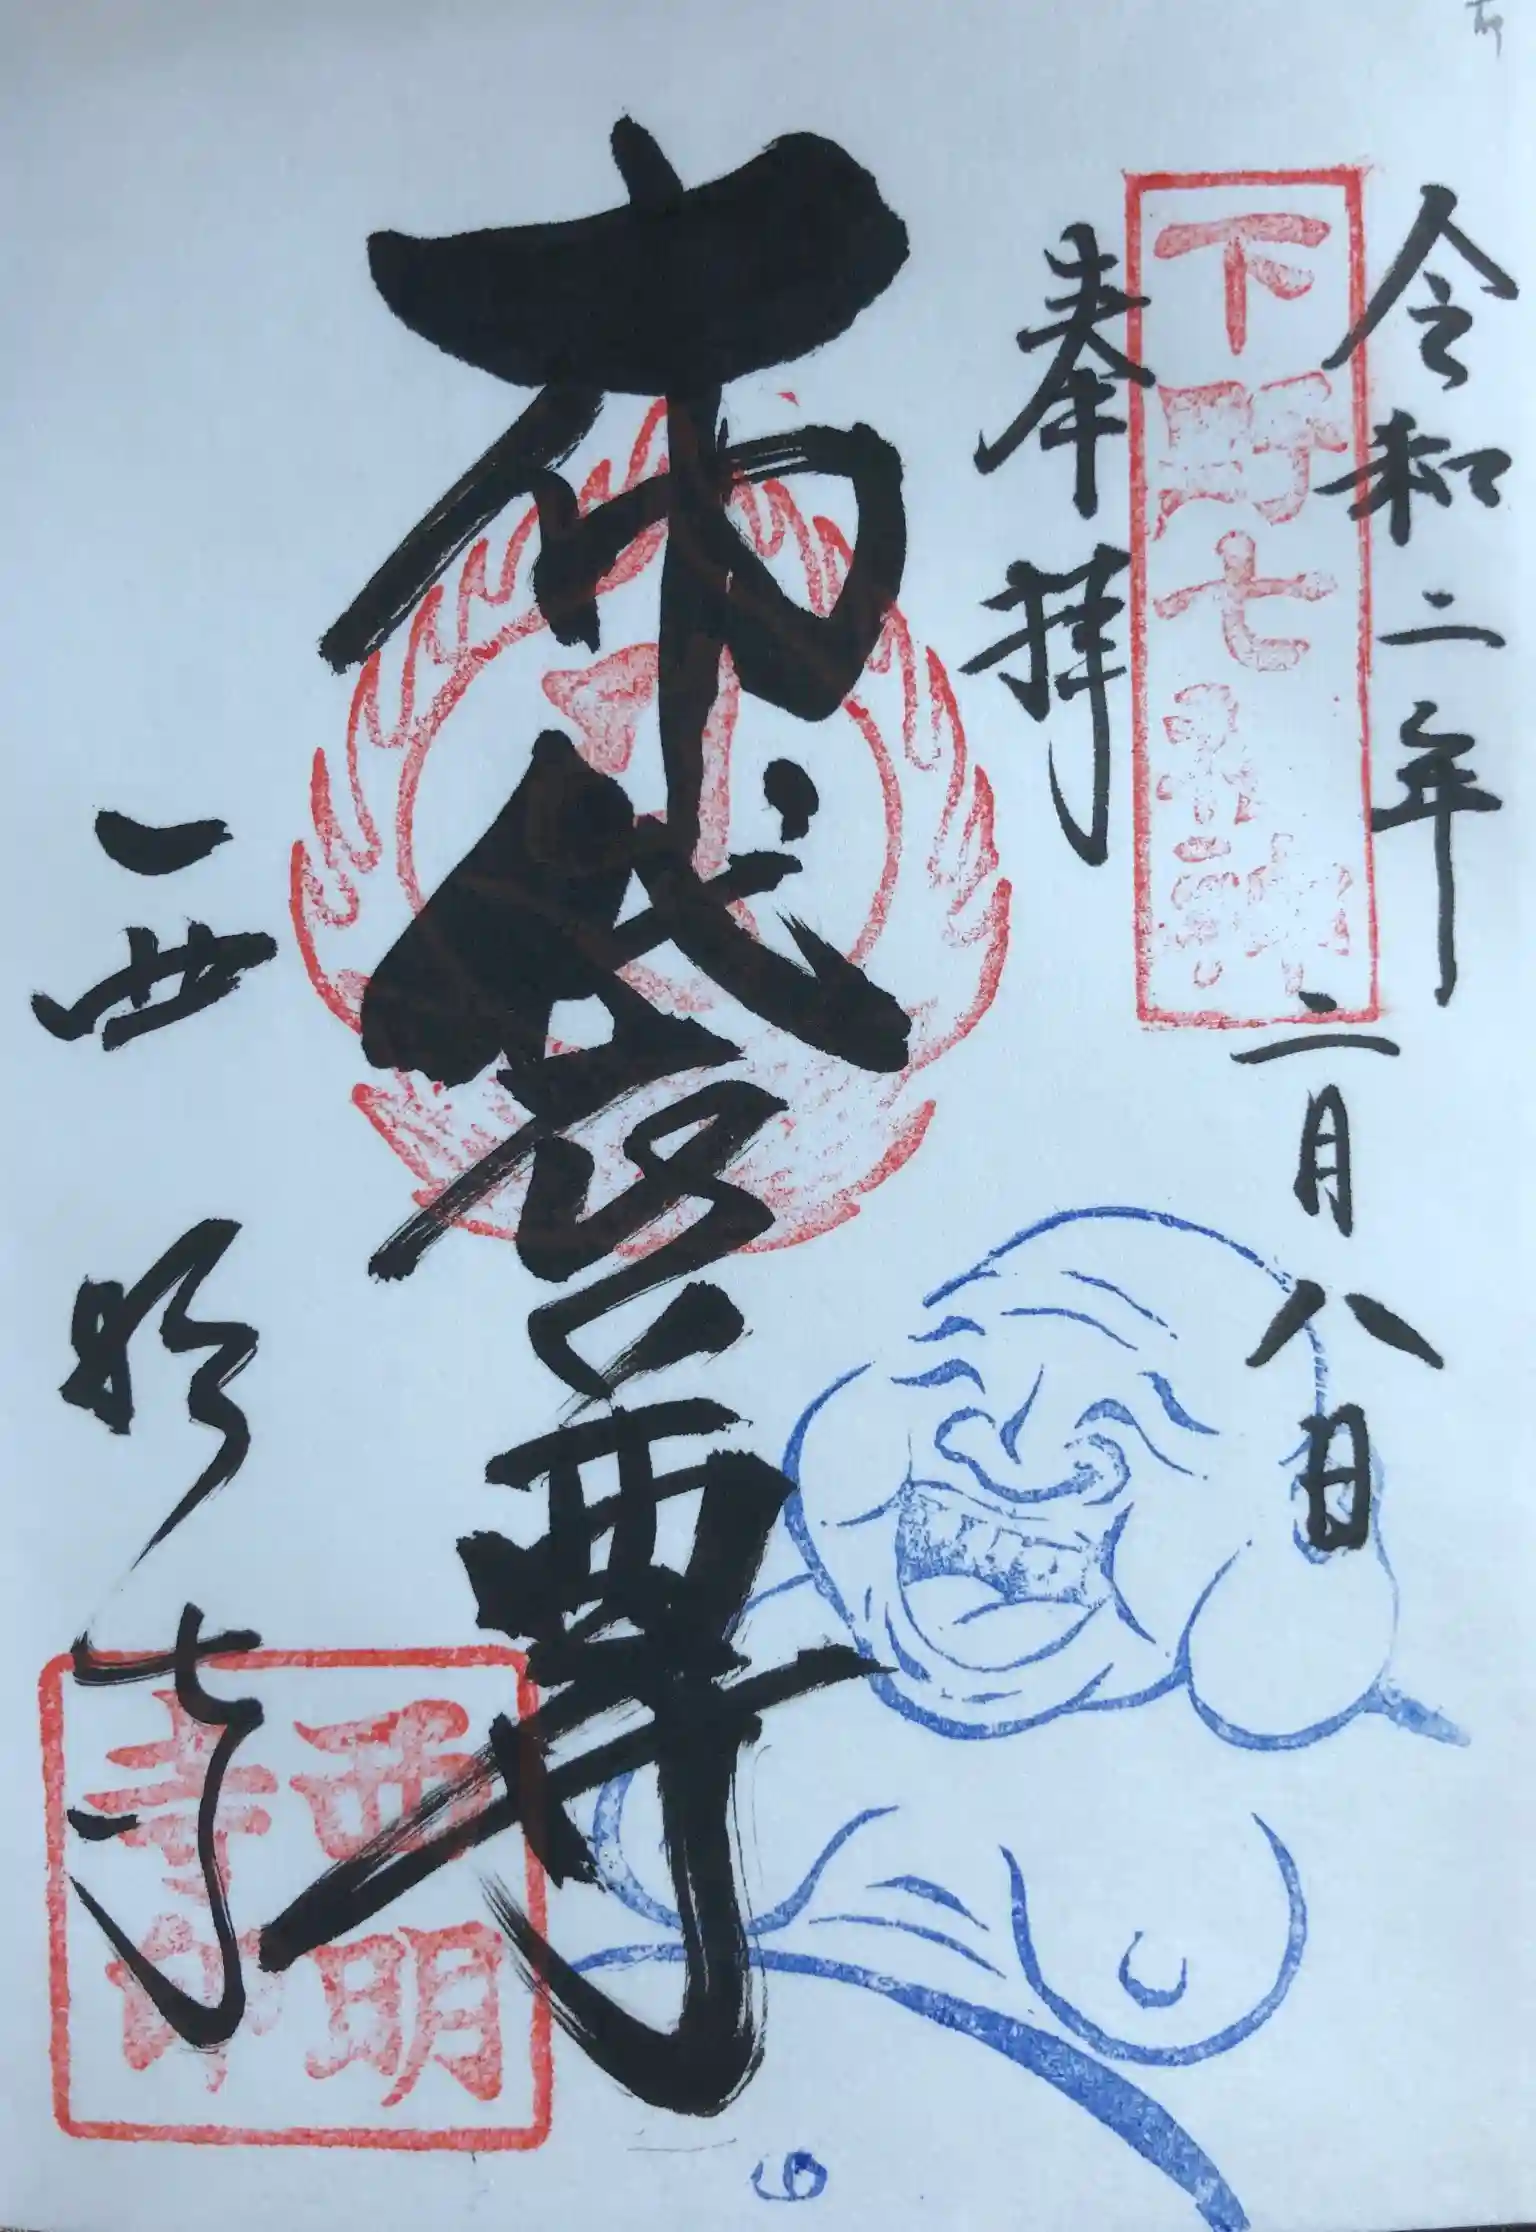 令和二年
二月八日
下野七福神
奉拝
布袋尊
西明寺
西明
寺印